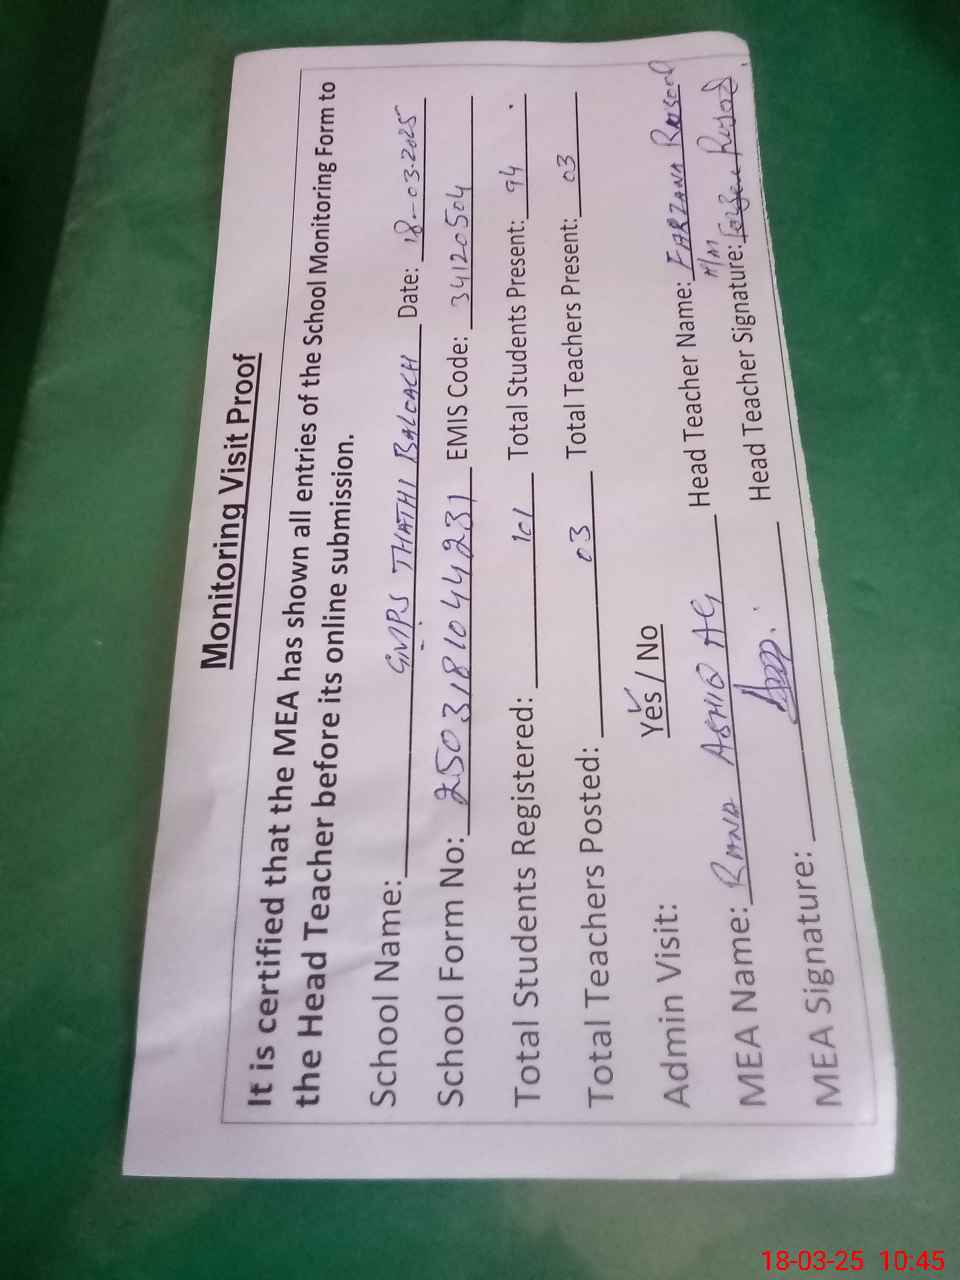 Monitoring Visit Proof
It is certified that the MEA has shown all entries of the School Monitoring Form to
the Head Teacher before its online submission.
School Name: GMPS THATHI BALOACH Date: 18-03-2025
School Form No: 2503181044231 EMIS Code: 34120504
Total Students Registered: 101 Total Students Present: 94
Total Teachers Posted: 03 Total Teachers Present: 03
Admin Visit: Yes / No
MEA Name: RANA ASHIQ Head Teacher Name: FARZANA Rasool
MEA Signature: Head Teacher Signature:
18-03-25 10:45